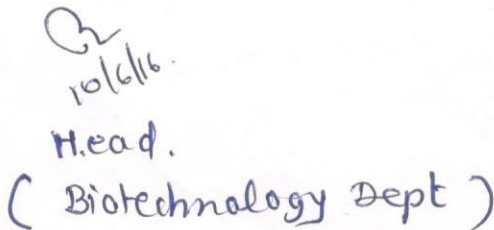 10/6/16.
Head.
( Biotechnology Dept )